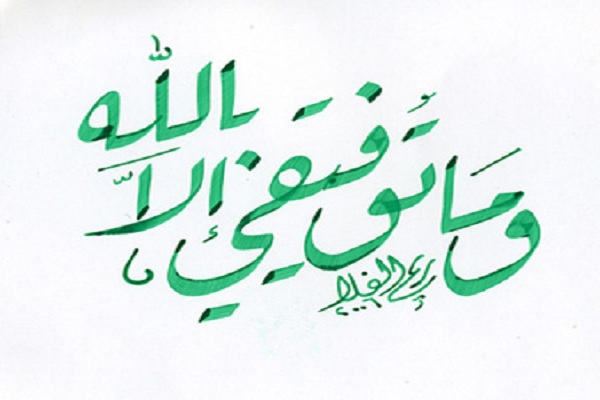 وما توفيقي إلاّ بالله